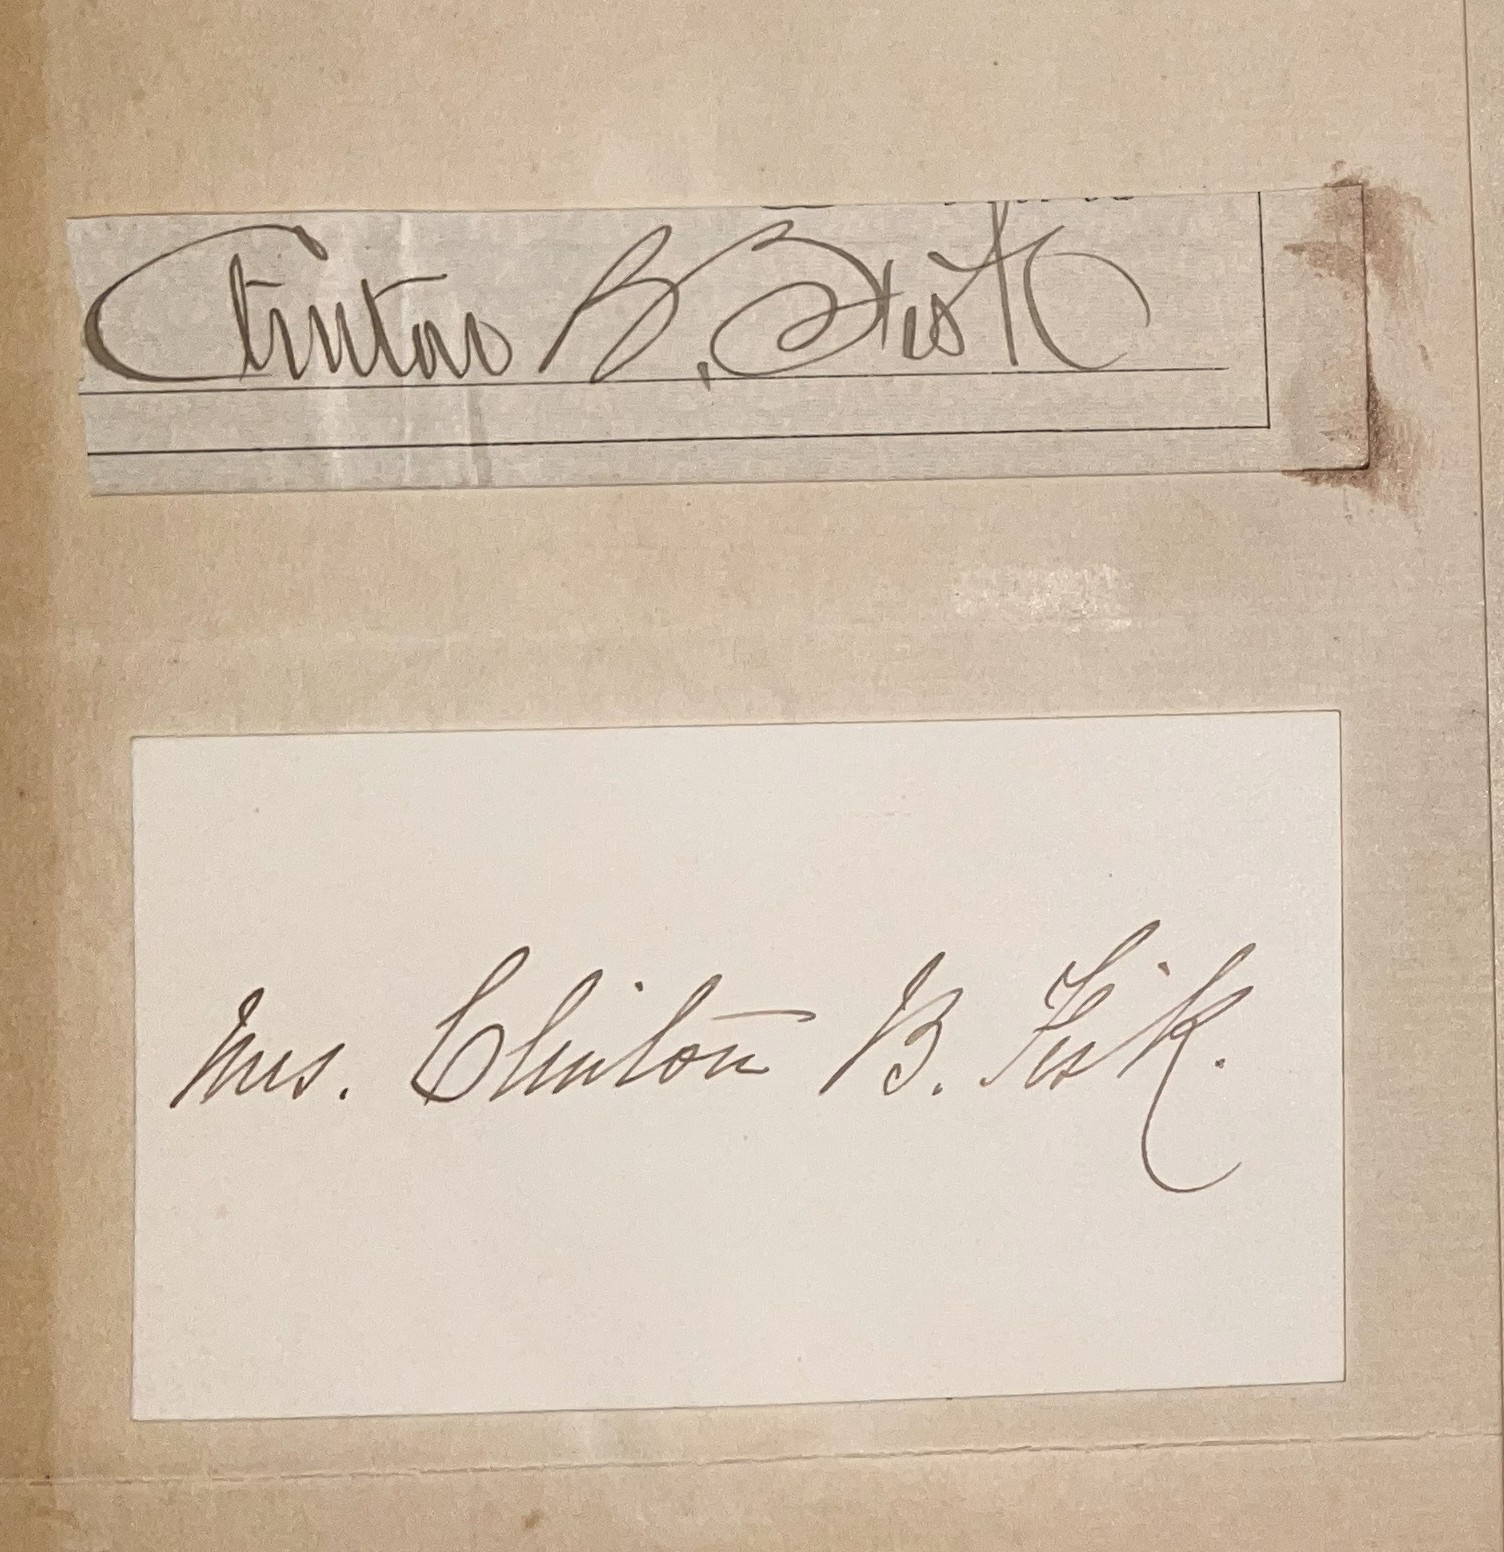 Clinton B. Fisk
Mrs. Clinton B. Fisk.